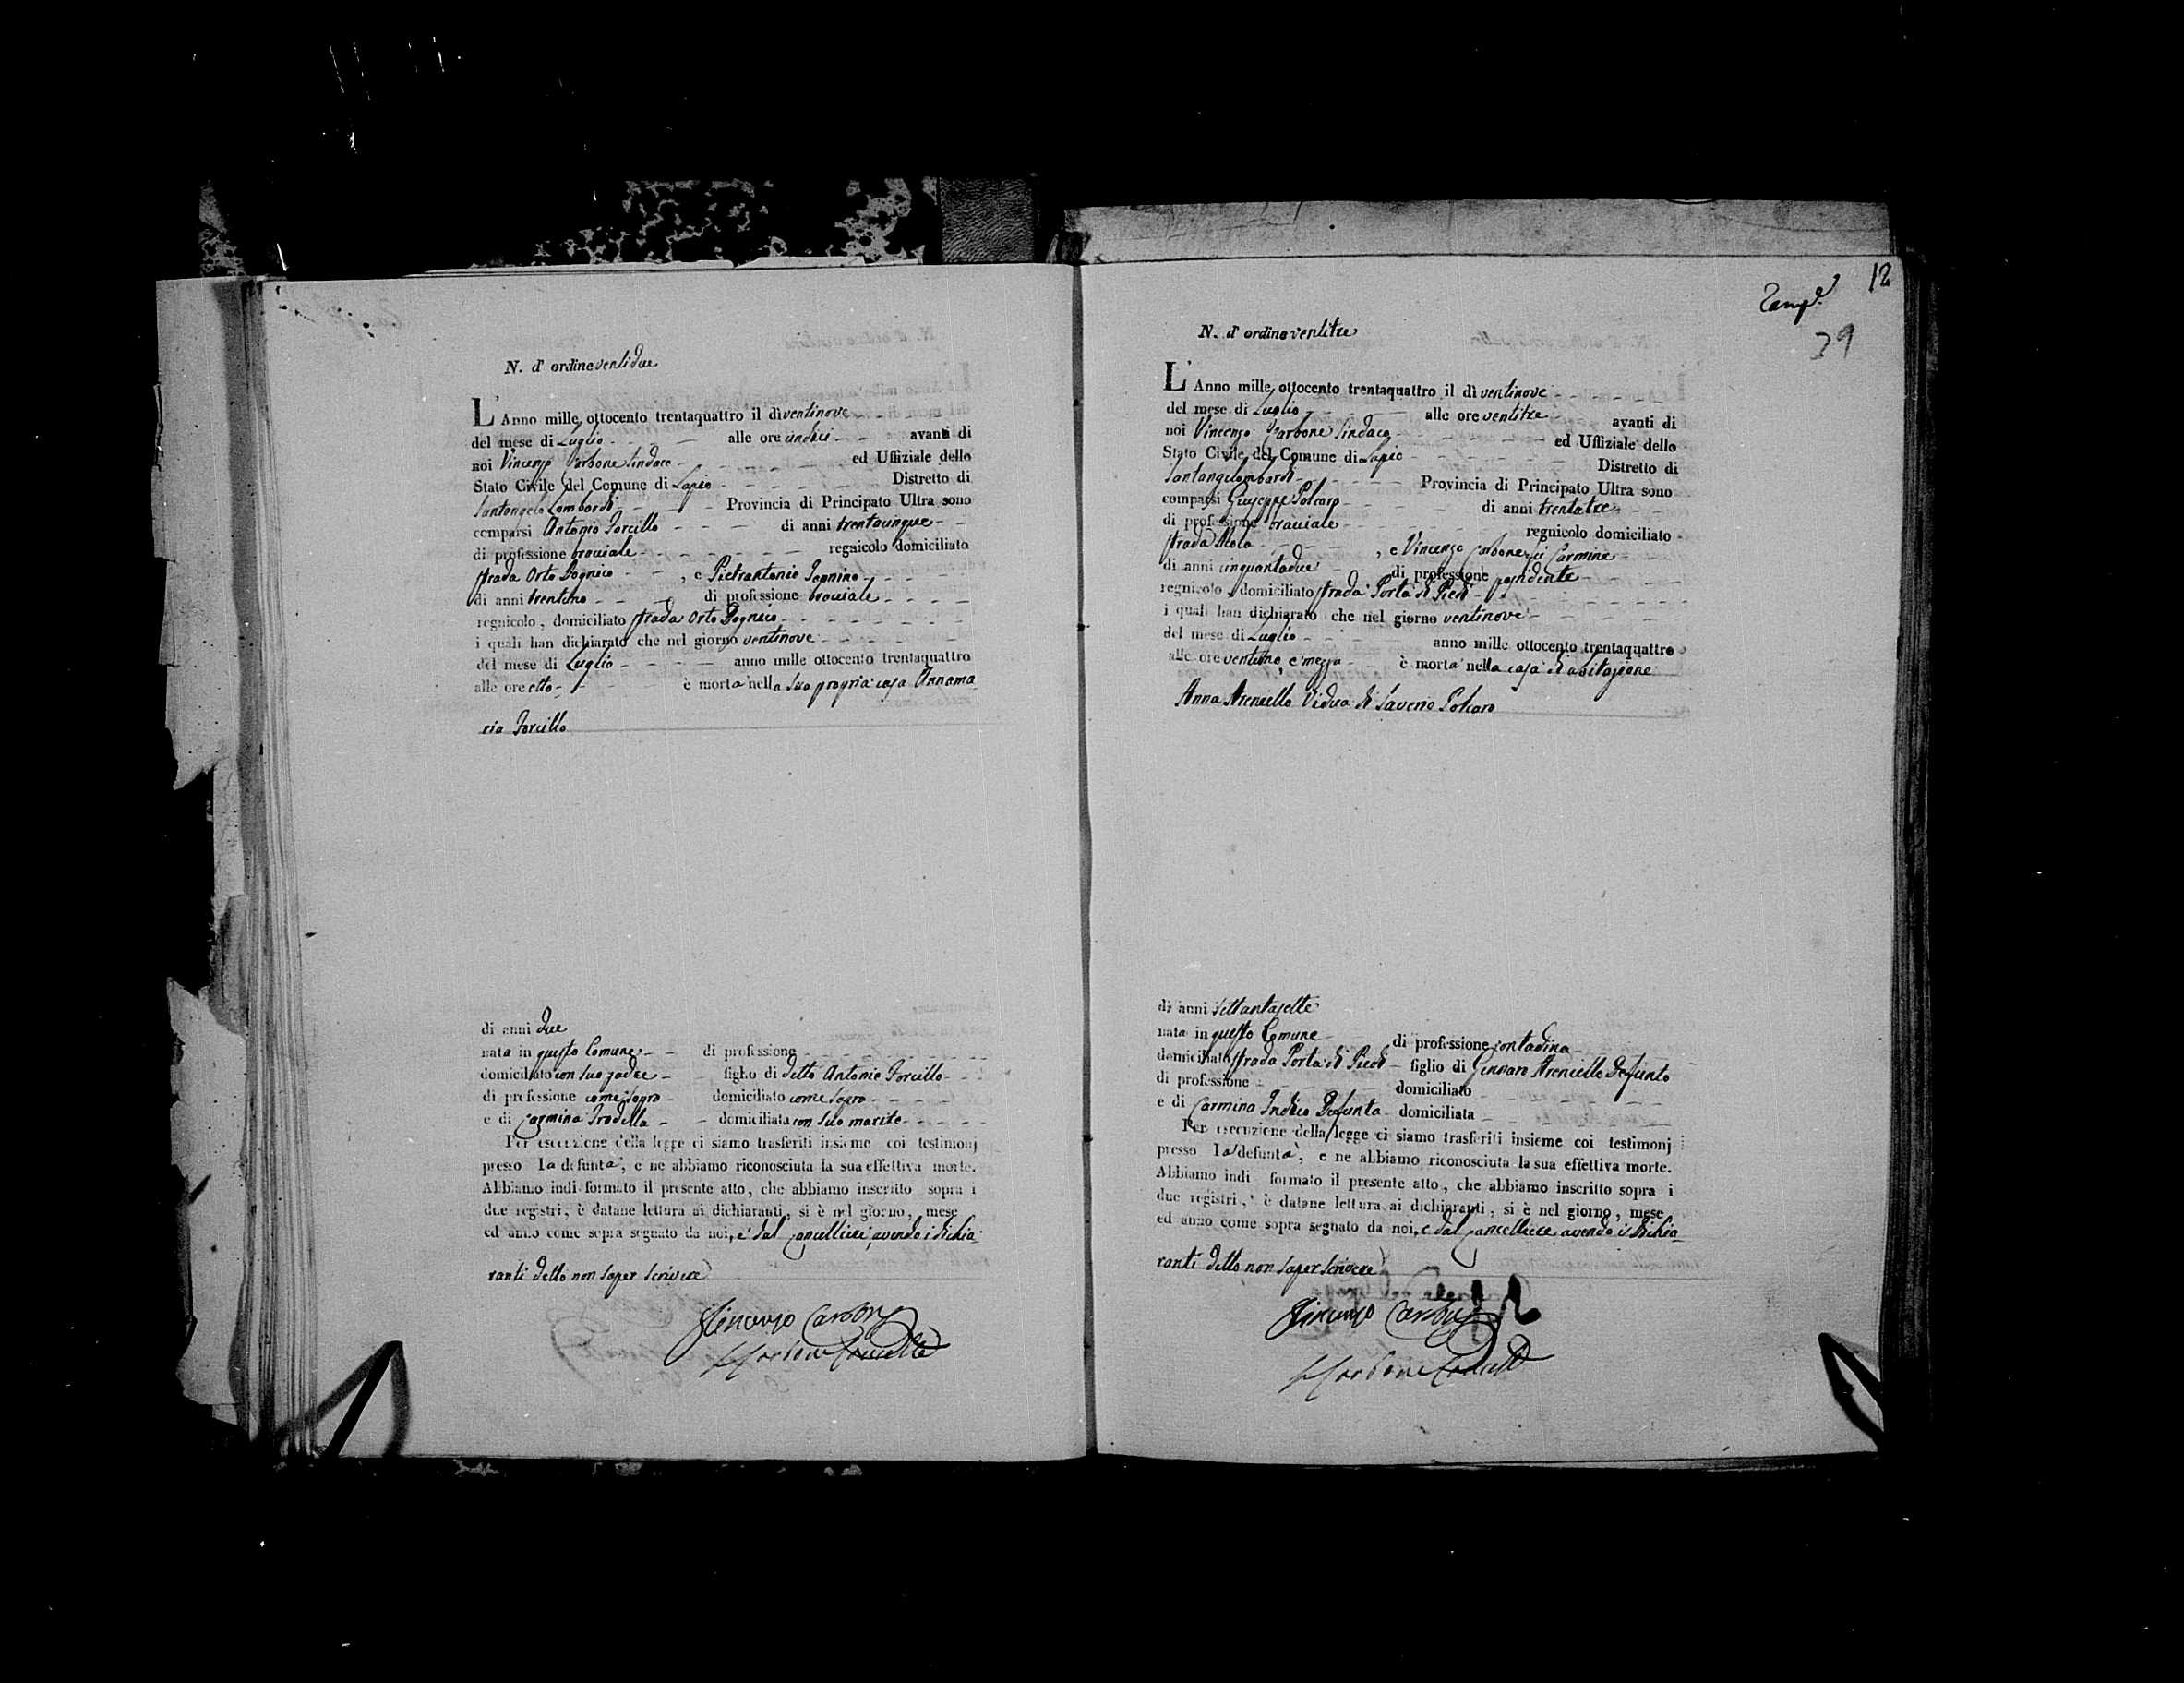 N. d' ordine ventidue
L'Anno mille ottocento trentaquattro il dì ventinove
del mese di Luglio alle ore undici avanti di
noi Vincenzo Carbone Sindaco ed Uffiziale dello
Stato Civile del Comune di Lapio Distretto di
Santangelo Lombardi Provincia di Principato Ultra sono
comparsi Antonio Forcillo di anni trentacinque
di professione bracciale regnicolo domiciliato
strada Orto Dognico , e Pietrantonio Iannino
di anni trentuno di professione bracciale
regnicolo, domiciliato strada Orto Dognico
i quali han dichiarato che nel giorno ventinove
del mese di Luglio anno mille ottocento trentaquattro
alle ore otto è morta nella sua propria casa Annama
ria Forcillo
di anni due
nata in questo Comune di professione
domiciliata con suo padre figlio di detto Antonio Forcillo
di professione come sopra domiciliato come sopra
e di Carmina Trodella domiciliata con suo marito
Per esecuzione della legge ci siamo trasferiti insieme coi testimonj
presso la defunta, e ne abbiamo riconosciuta la sua effettiva morte.
Abbiamo indi formato il presente atto, che abbiamo inscritto sopra i
due registri, è datane lettura ai dichiaranti, si è nel giorno, mese
ed anno come sopra segnato da noi, e dal Cancelliere avendo i dichia
ranti detto non saper scrivere
Vincenzo Carbone
Carbone Cancelle
12
39
N. d' ordine ventitre
L'Anno mille ottocento trentaquattro il dì ventinove
del mese di Luglio alle ore ventitre avanti di
noi Vincenzo Carbone Sindaco ed Uffiziale dello
Stato Civile del Comune di Lapio Distretto di
Santangelombardi Provincia di Principato Ultra sono
comparsi Giuseppe Polcaro di anni trentatre
di professione bracciale regnicolo domiciliato
strada Molo , e Vincenzo Carbone fu Carmine
di anni cinquantadue di professione possidente
regnicolo, domiciliato strada Porta di Piedi
i quali han dichiarato che nel giorno ventinove
del mese di Luglio anno mille ottocento trentaquattro
alle ore ventuno, e mezza è morta nella casa di abitazione
Anna Areniello Vidua di Saverio Polcaro
di anni settantasette
nata in questo Comune di professione contadina
domiciliata strada Porta di Piedi figlio di Gennaro Areniello Defunto
di professione domiciliato
e di Carmina Indico Defunta domiciliata
Per esecuzione della legge ci siamo trasferiti insieme coi testimonj
presso la defunta, e ne abbiamo riconosciuta la sua effettiva morte.
Abbiamo indi formato il presente atto, che abbiamo inscritto sopra i
due registri, è datane lettura ai dichiaranti, si è nel giorno, mese
ed anno come sopra segnato da noi, e dal Cancelliere avendo i dichia
ranti detto non saper scrivere
Vincenzo Carbone
Carbone Cancelle